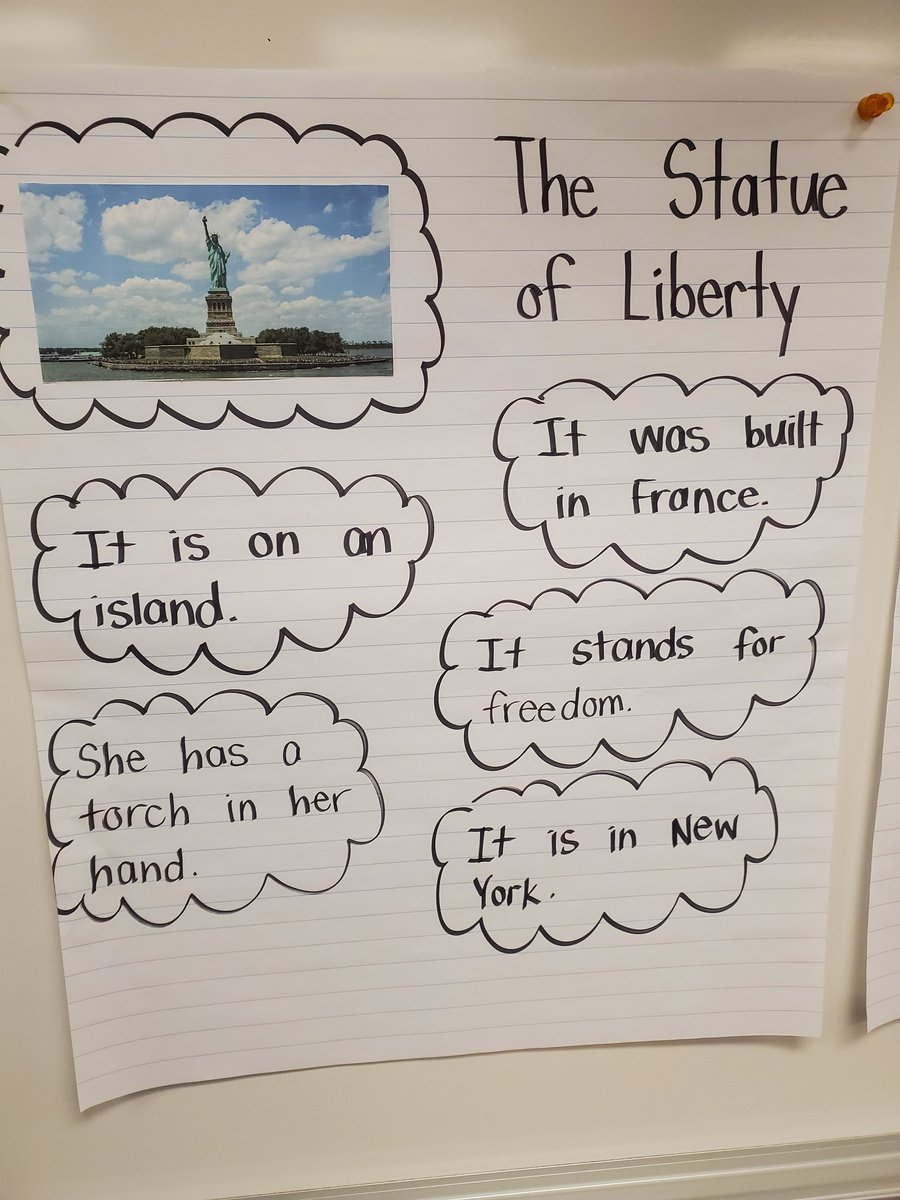 The Statue
of Liberty
It was built
in France.
It is on an
island.
It stands for
freedom.
She has a
torch in her
hand.
It is in New
York.